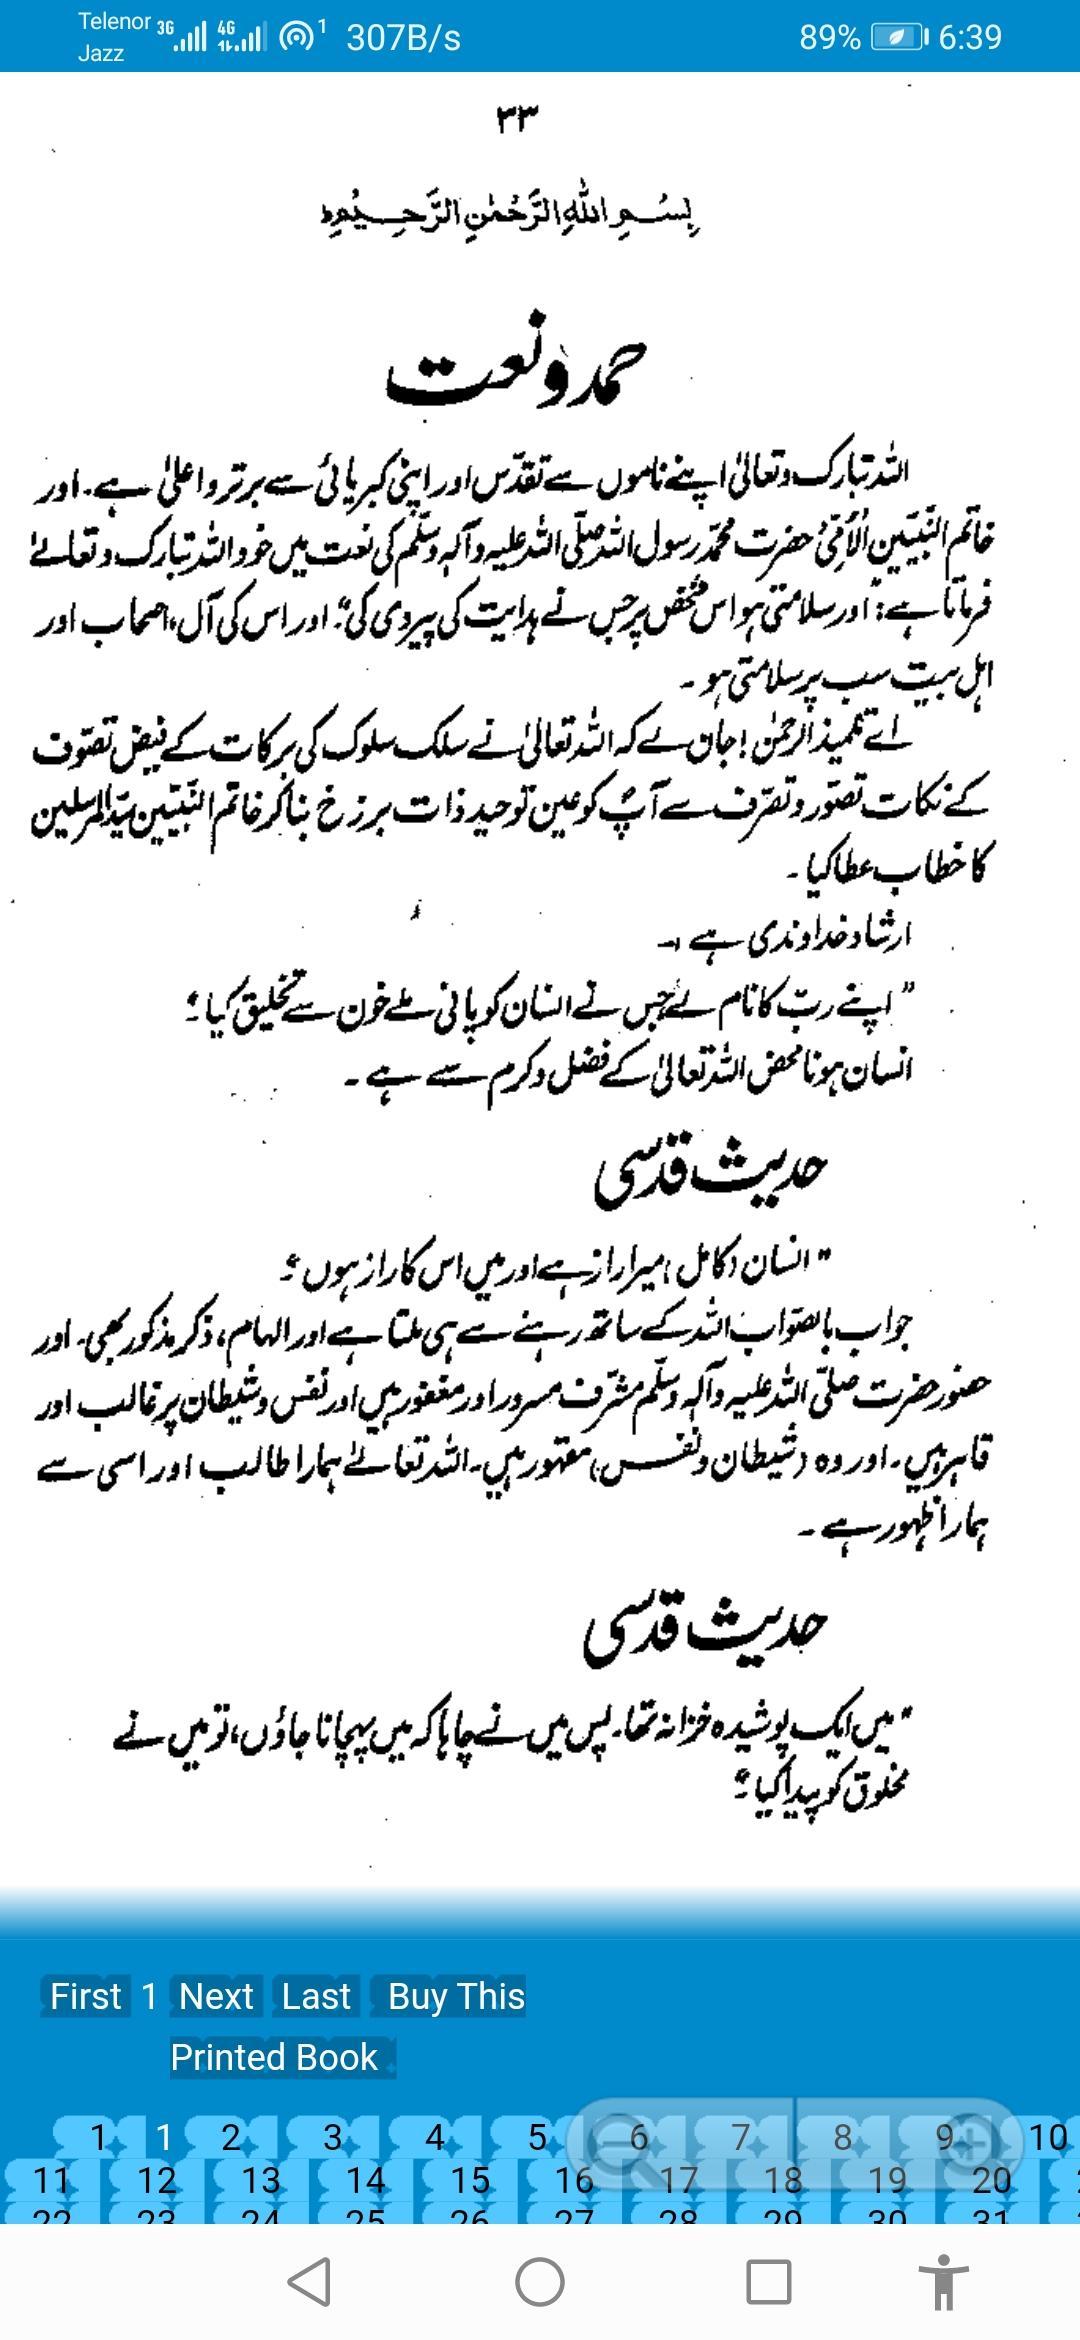 Telenor 3G 4G 1 307B/s 89% 6:39
Jazz
۳۳
بِسْمِ اللهِ الرَّحْمٰنِ الرَّحِيْمِ
حمد و نعت
اللہ تبارک و تعالیٰ اپنے ناموں سے تقدّس اور اپنی کبریائی سے برتر و اعلیٰ ہے۔ اور
خاتم النّبیّین الاُمّیّ حضرت محمّد رسول اللہ صلّی اللہ علیہ وآلہٖ وسلّم کی نعت میں خود اللہ تبارک و تعالےٰ
فرماتا ہے: "اور سلامتی ہو اس شخص پر جس نے ہدایت کی پیروی کی" اور اس کی آل، اصحاب اور
اہل بیت سب پر سلامتی ہو۔
اے تلمیذ الرحمٰن! جان لے کہ اللہ تعالیٰ نے سلک سلوک کی برکات کے فیض تصوّف
کے نکات تصوّر و تصرّف سے آپؐ کو عین توحید ذات برزخ بنا کر خاتم النّبیّین سیّد المرسلین
کا خطاب عطا کیا۔
ارشاد خداوندی ہے :۔
"اپنے ربّ کا نام لے جس نے انسان کو پانی ملے خون سے تخلیق کیا"
انسان ہونا محض اللہ تعالیٰ کے فضل و کرم سے ہے۔
حدیث قدسی
"انسان (کامل) میرا راز ہے اور میں اس کا راز ہوں"
جواب باالصّواب اللہ کے ساتھ رہنے سے ہی ملتا ہے اور الہام، ذکر مذکور بھی۔ اور
حضور حضرت صلّی اللہ علیہ وآلہٖ وسلّم مشرّف مسرور اور مغفور ہیں اور نفس و شیطان پر غالب اور
قاہر ہیں۔ اور وہ (شیطان و نفس) مقہور ہیں۔ اللہ تعالےٰ ہمارا طالب اور اسی سے
ہمارا ظہور ہے۔
حدیث قدسی
"میں ایک پوشیدہ خزانہ تھا۔ پس میں نے چاہا کہ میں پہچانا جاؤں، تو میں نے
مخلوق کو پیدا کیا"
First 1 Next Last Buy This
Printed Book
1 1 2 3 4 5 6 7 8 9 10
11 12 13 14 15 16 17 18 19 20
22 23 24 25 26 27 28 29 30 31